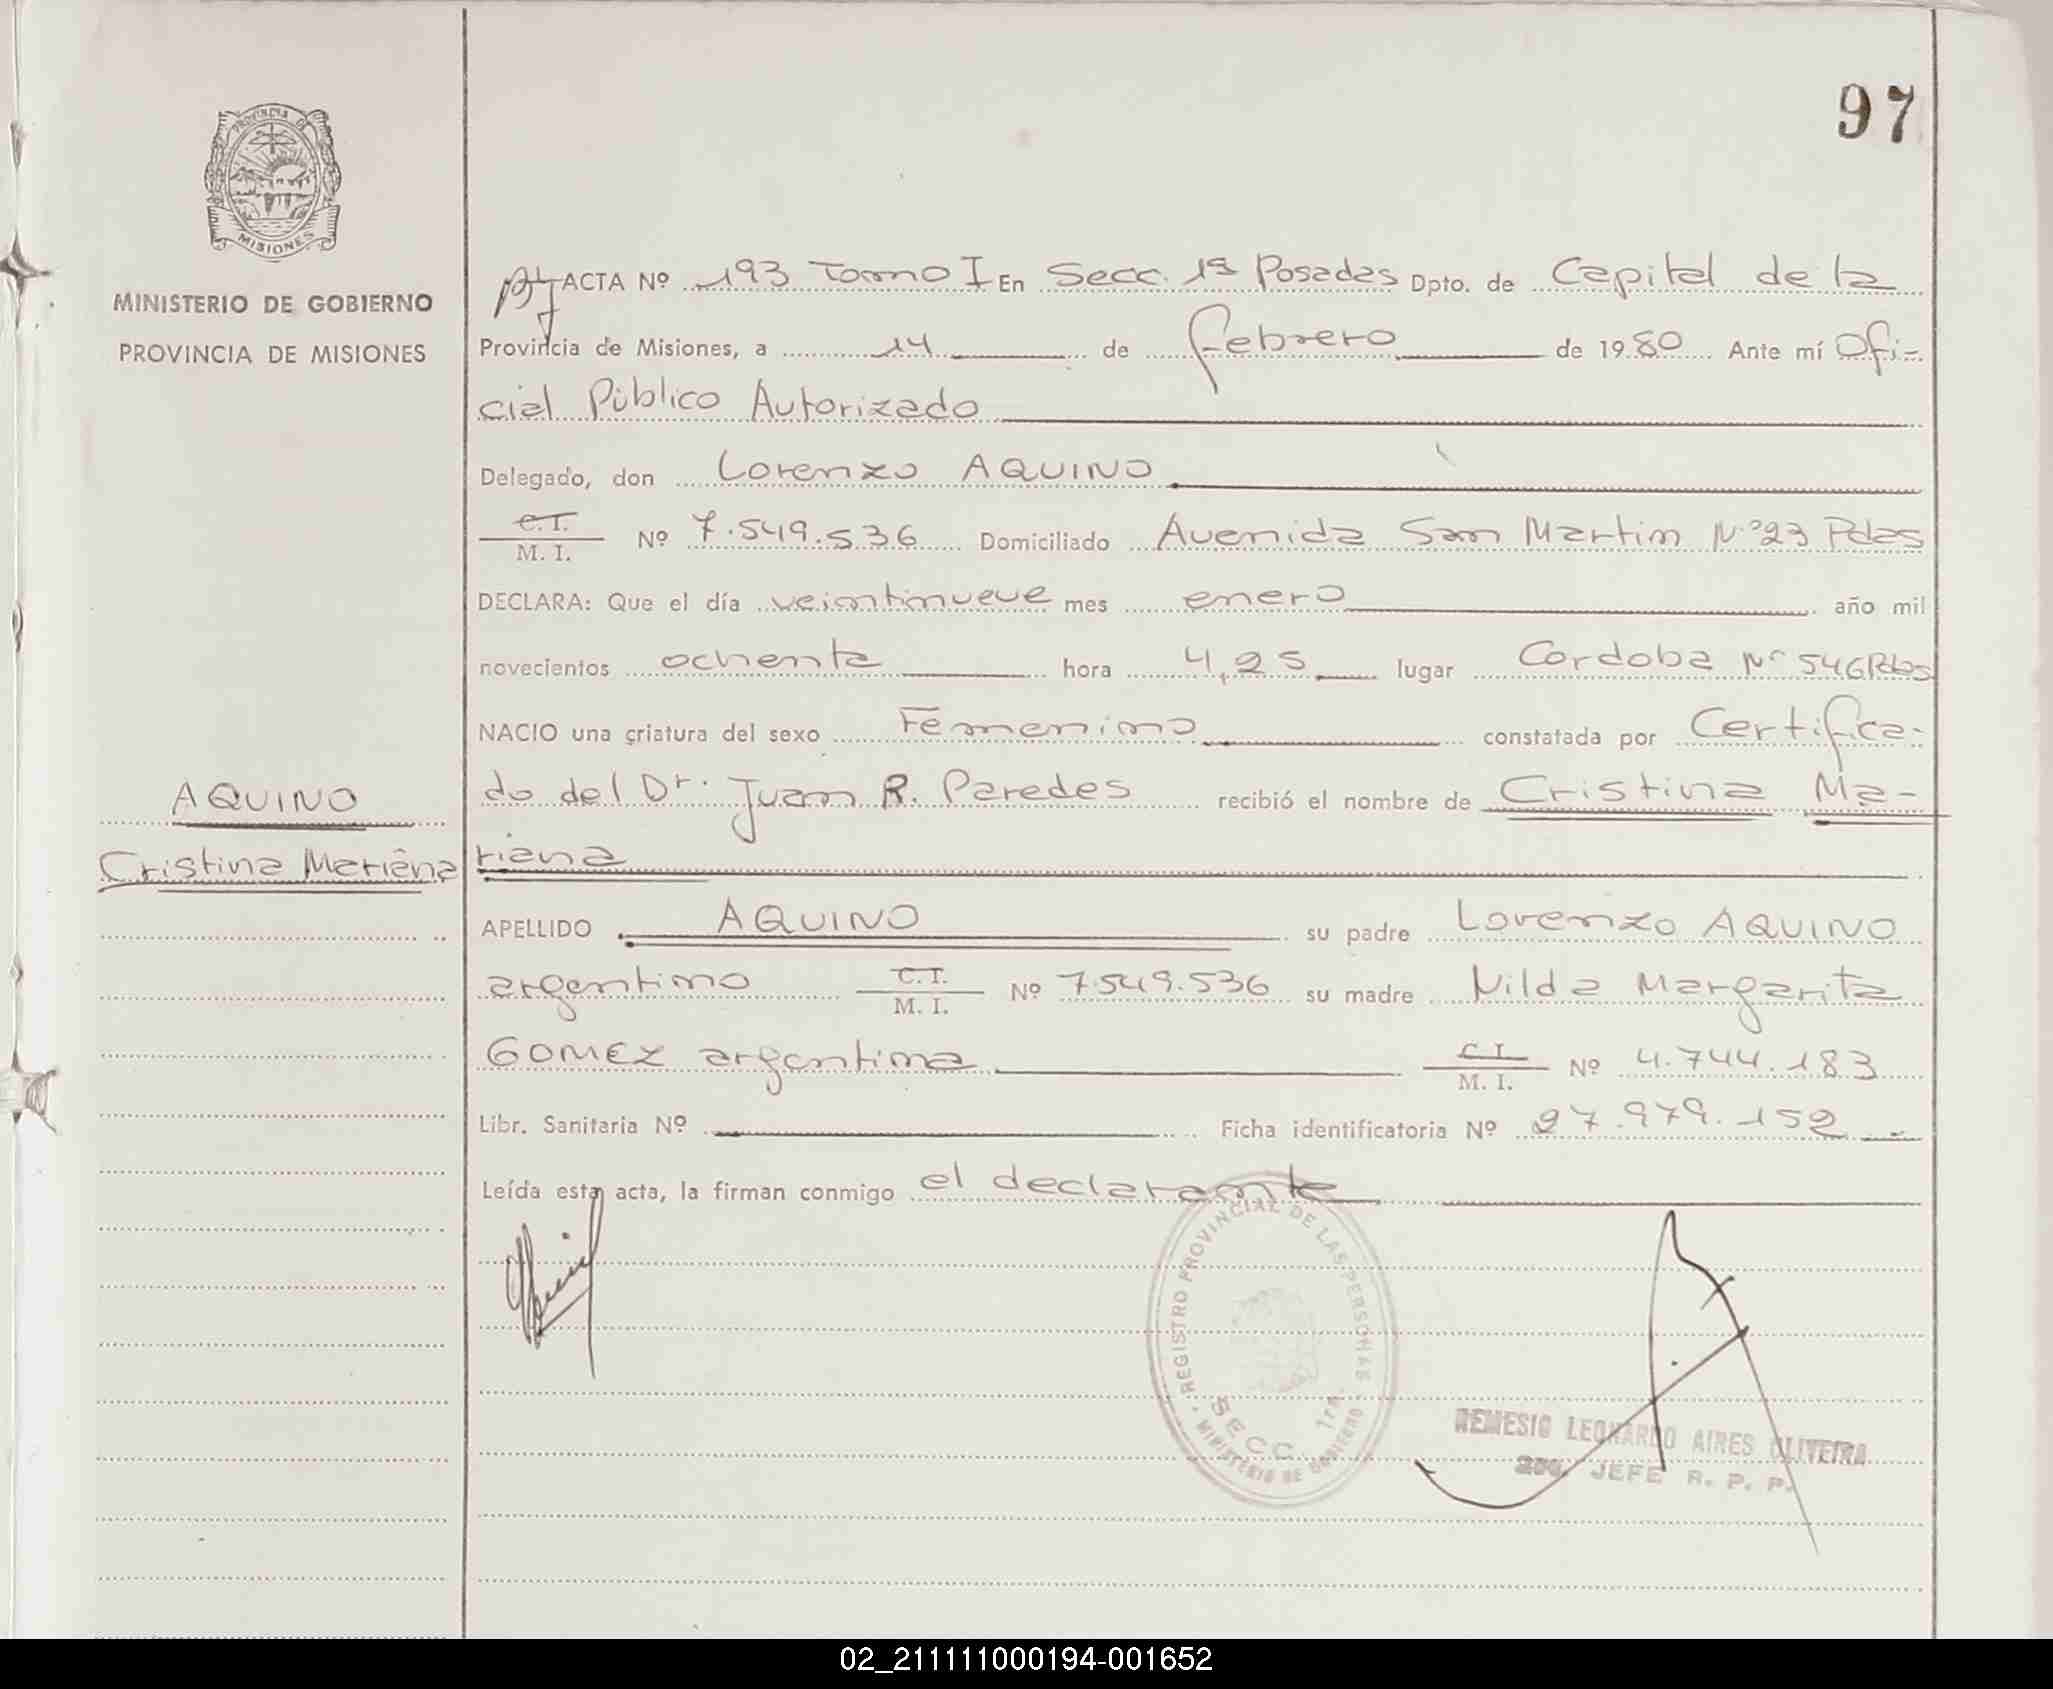 97
PROVINCIA DE
MISIONES
MINISTERIO DE GOBIERNO
PROVINCIA DE MISIONES
AQUINO
Cristina Mariana
ACTA Nº 193 Tomo I En Secc. 1ª Posadas Dpto. de Capital de la
Provincia de Misiones, a 14 de Febrero de 1980 Ante mí Ofi-
cial Público Autorizado
Delegado, don Lorenzo AQUINO
C.I.
M. I. Nº 7.549.536 Domiciliado Avenida San Martin Nº 23 Pdas
DECLARA: Que el día veintinueve mes enero año mil
novecientos ochenta hora 4,25 lugar Cordoba Nº 546 Pdas
NACIO una criatura del sexo Femenino constatada por Certifica-
do del Dr. Juan R. Paredes recibió el nombre de Cristina Ma-
riana
APELLIDO AQUINO su padre Lorenzo AQUINO
argentino C.I.
M. I. Nº 7.549.536 su madre Nilda Margarita
GOMEZ argentina C.I.
M. I. Nº 4.744.183
Libr. Sanitaria Nº Ficha identificatoria Nº 27.979.152
Leída esta acta, la firman conmigo el declarante
REGISTRO PROVINCIAL DE LAS PERSONAS
SECC. 1ra.
MINISTERIO DE GOBIERNO
REMESIO LEONARDO AIRES OLIVEIRA
2do. JEFE R. P. P.
02_211111000194-001652